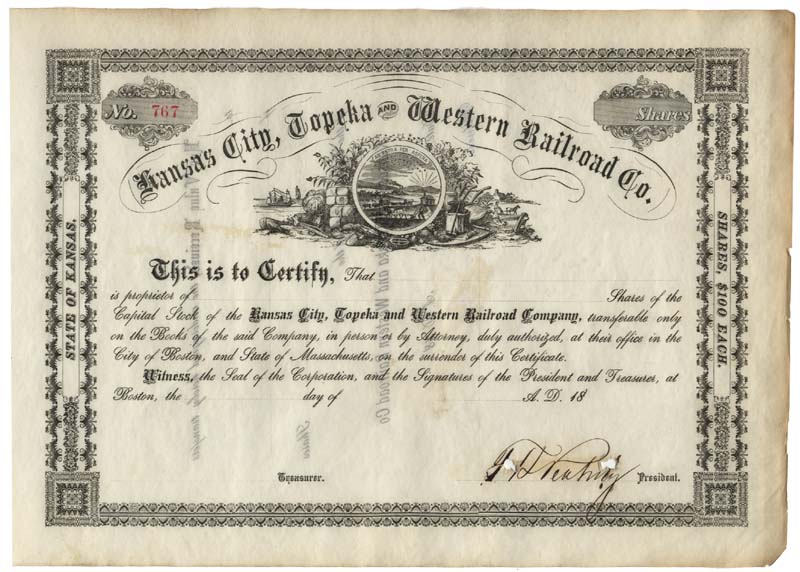 No. 767
Shares
Kansas City, Topeka AND Western Railroad Co.
STATE OF KANSAS.
SHARES, $100 EACH.
This is to Certify, That
is proprietor of Shares of the
Capital Stock of the Kansas City, Topeka and Western Railroad Company, transferable only
on the Books of the said Company, in person or by Attorney, duly authorized, at their office in the
City of Boston, and State of Massachusetts, on the surrender of this Certificate.
Witness, the Seal of the Corporation, and the Signatures of the President and Treasurer, at
Boston, the day of A. D. 18
Treasurer. President.